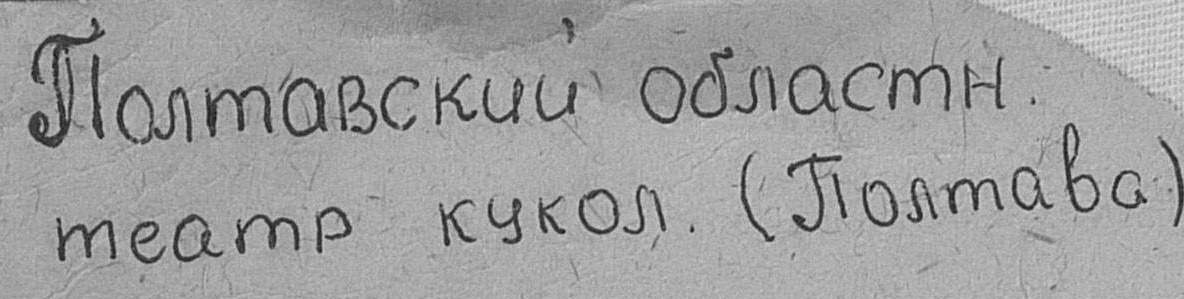 Полтавский областн.
театр кукол. (Полтава)